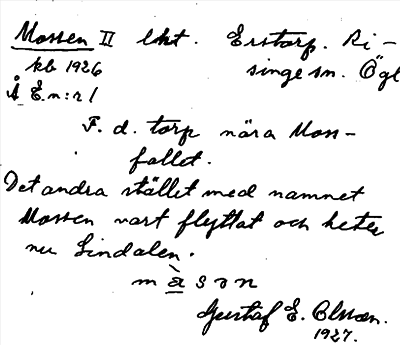 Mossen II lht. Erstorp. Ri-
kb 1926 singe sn. Ögl
Å E.n:r 1
F. d. torp nära Moss-
fallet.
Det andra stället med namnet
Mossen vart flyttat och heter
nu Lindalen.
m à s ɔ n
Gustaf E. Olsson.
1927.